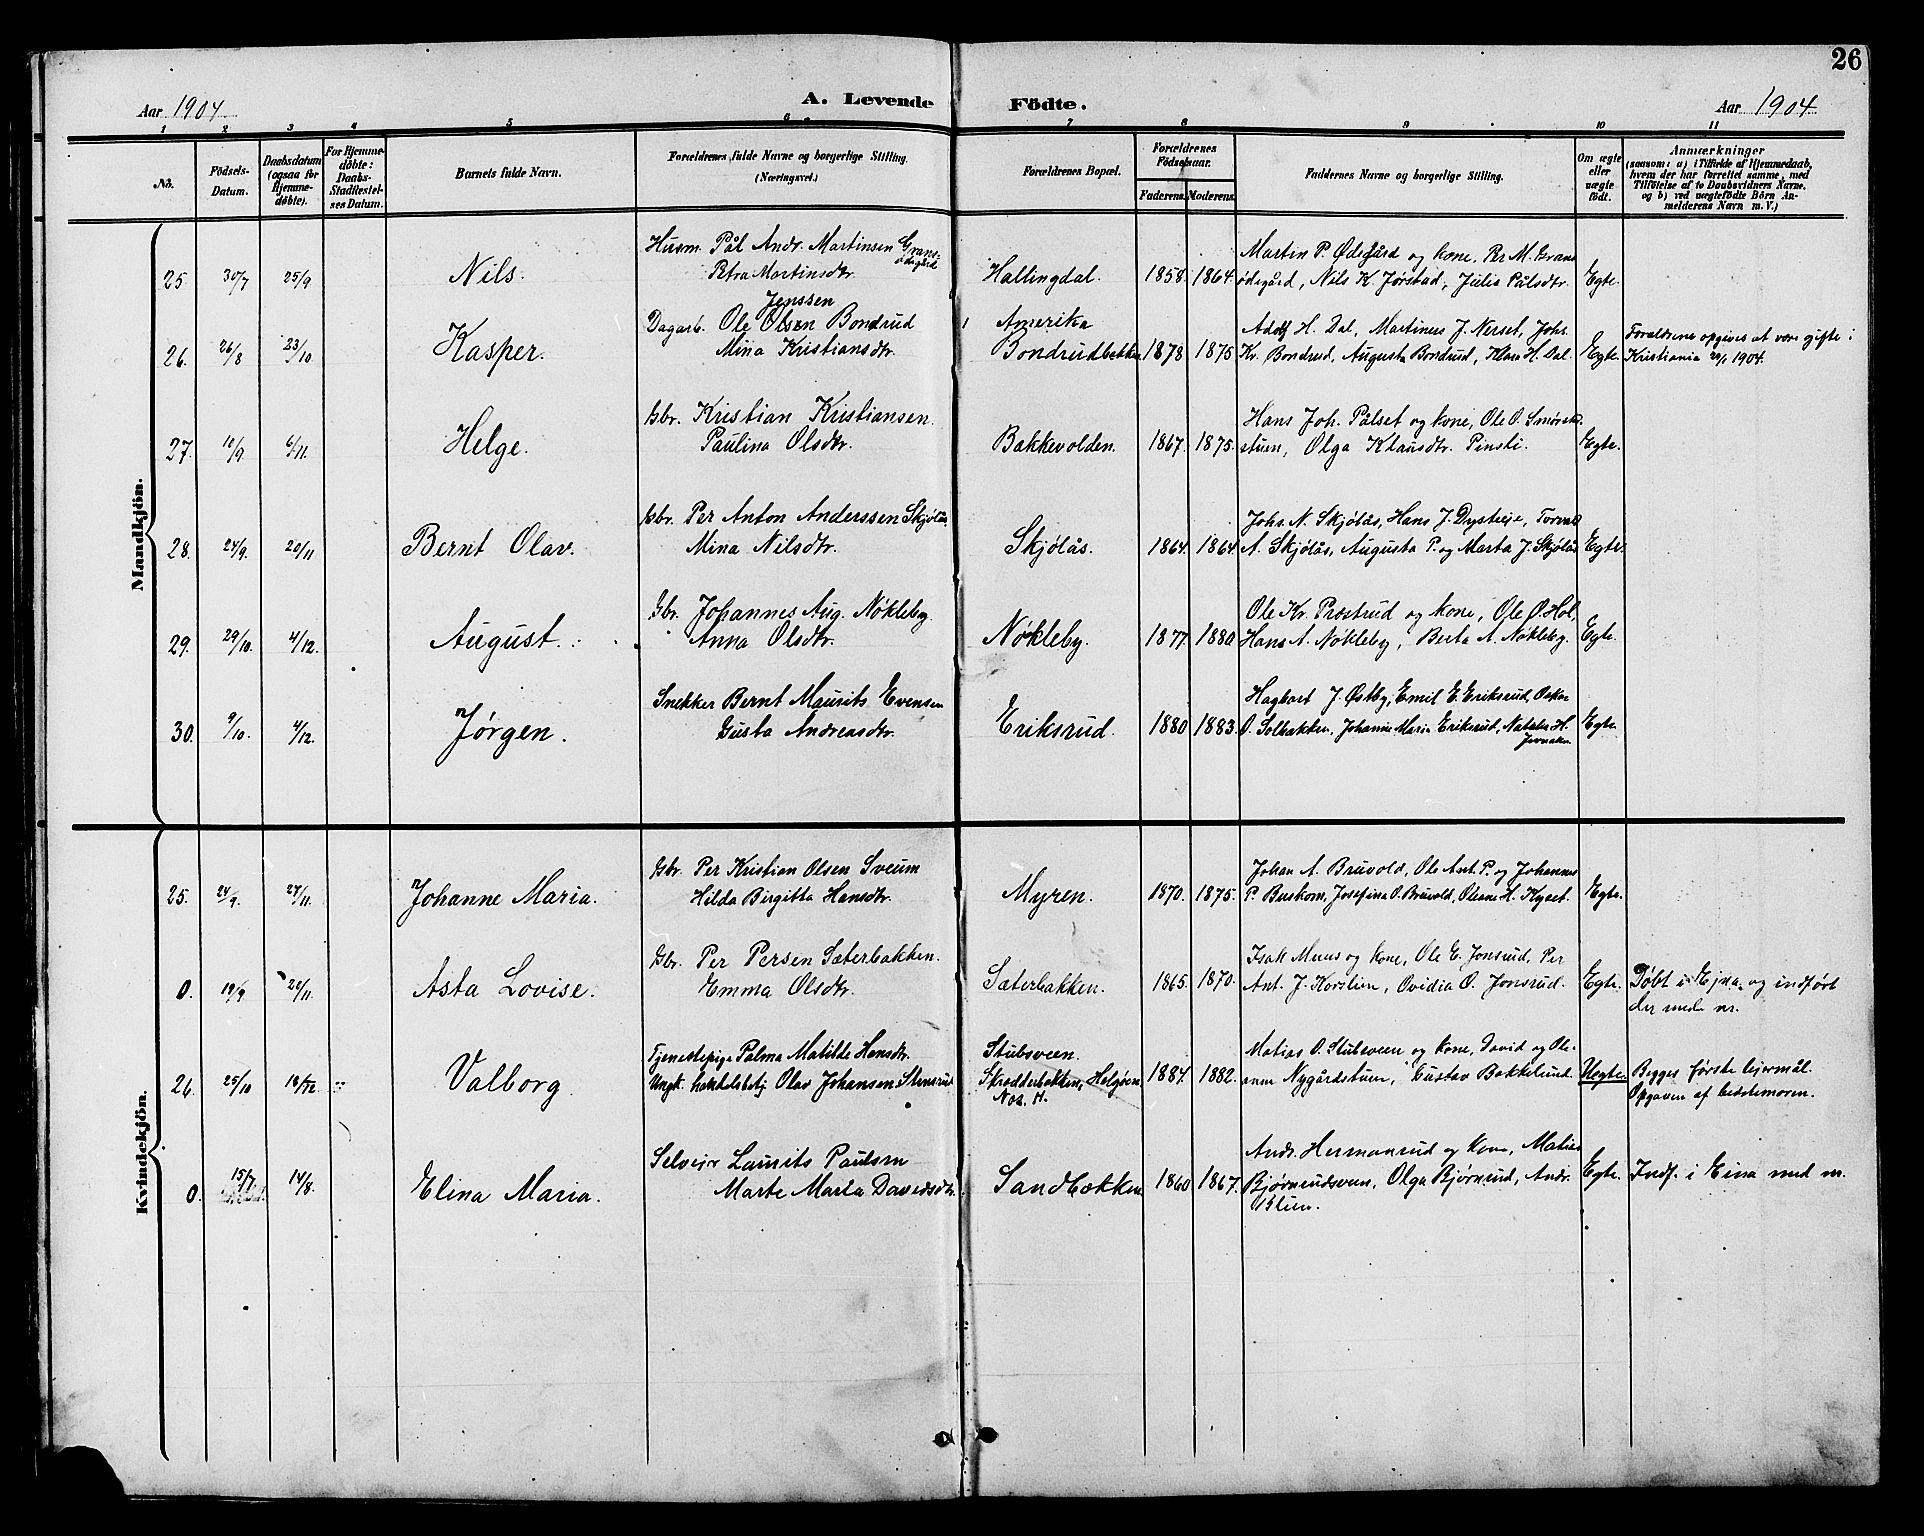 26
Aar 1904
A. Levende Födte.
Aar 1904
1 2 3 4 5 6 7 8 9 10 11
No.
Födsels-
Datum.
Daabsdatum
(ogsaa for
Hjemme-
døbte).
For Hjemme-
døbte:
Daabs-
Stadfæstel-
ses Datum.
Barnets fulde Navn.
Forældrenes fulde Navne og borgerlige Stilling.
(Næringsvei.)
Forældrenes Bopæl.
Forældrenes
Födselsaar.
Faderens.
Moderens.
Faddernes Navne og borgerlige Stilling.
Om ægte
eller
uægte
født.
Anmærkninger
(saasom: a) i Tilfælde af Hjemmedaab,
hvem der har forrettet samme, med
Tilföielse af to Daabsvidners Navne,
og b) ved uægtefödte Börn An-
melderens Navn m. V.)
Mandkjön.
Husm. Pål Andr. Martinsen Grans-
ødegård
Petra Martinsdtr.
25. 30/7 25/9 Nils. Hallingdal. 1858. 1864.
Martin P. Ødegård og kone, Per M. Grans
ødegård, Nils K. Jørstad, Julia Pålsdtr. Egte.
Jenssen
Dagarb. Ole Olsen Bondrud
Mina Kristiansdtr.
26. 26/8 23/10 Kasper.
Amerika
Bondrudbakken 1878 1875
Adolf H. Dal, Martinus J. Nerset, Johs.
Kr. Bondrud, Augusta Bondrud, Klara H. Dal. Egte.
Forældrene opgives at være gifte i
Kristiania 1904.
Gbr. Kristian Kristiansen.
Paulina Olsdtr.
27. 10/9. 6/11. Helge. Bakkevolden. 1867. 1875.
Hans Joh. Pålset og kone, Ole O. Smørsk-
stuen, Olga Klausdtr. Pinsli. Egte.
Gbr. Per Anton Anderssen Skjølås.
Mina Nilsdtr.
28. 24/9. 20/11 Bernt Olav. Skjølås. 1864. 1864.
Johs. N. Skjølås, Hans J. Dysteije, Torvald
A. Skjølås, Augusta P. og Marta J. Skjølås Egte.
Gbr. Johannes Aug. Nøkleby.
Anna Olsdtr.
29. 29/10. 4/12. August. Nøkleby. 1877. 1880
Ole Kr. Præstrud og kone, Ole O. Hol,
Hans A. Nøkleby, Berta A. Nøkleby. Egte.
Snekker Bernt Maurits Evensen
Gusta Andreasdtr.
30. 9/10. 4/12. Jørgen. Eriksrud. 1880 1883.
Hagbart J. Østby, Emil E. Eriksrud, Oskar
O. Solbakken, Johanne Maria Eriksrud, H. Egte.
Kvindekjön.
Gbr. Per Kristian Olsen Sveum
Hilda Birgitta Hansdtr.
25. 24/9. 27/11. Johanne Maria. Myren. 1870. 1875.
Johan A. Bruvold, Ole Ant. P. og Johannes
P. Buskom, Josefina O. Bruvold, Oleane H. Kyset. Egte.
Gbr. Per Persen Sæterbakken.
Emma Olsdtr.
0. 19/9 20/11. Asta Lovise. Sæterbakken. 1865. 1870.
Isak Muus og kone, Ole E. Jonsrud, Per
Ant. J. Korslien, Ovidia O. Jonsrud. Egte.
Døbt i Ejna og indført
der med nr.
Tjenestepige Palma Matilde Hansdtr.
Ungk. Olav Johansen Stensrud
26. 25/10 18/12. Valborg
Stubsveen.
Skrædderbakken, Helgøen,
Nes. H.
1884. 1882.
Matias O. Stubsveen og kone, David og Ole-
anna Nygårdstuen, Gustav Bakkelund. Uegte.
Begges første lejermål.
Opgaven af bedstemoren.
Selveier Laurits Paulsen
Marte Marla Davidsdtr.
0. 15/7 14/8. Elina Maria. Sandbækken 1860 1867.
Andr. Hermanrud og kone, Matias
Bjørnerudsveen, Olga Bjørnerud, Andr.
Blien. Egte.
Indf. i Eina med nr.